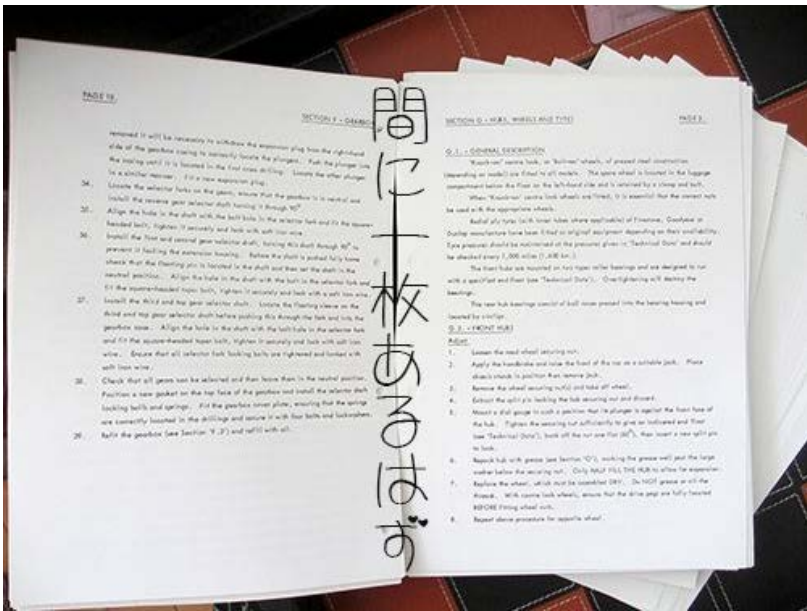 PAGE 18.
SECTION F - GEARBOX
removed it will be necessary to withdraw the expansion plug from the right-hand
side of the gearbox casing to correctly locate the plungers. Push the plunger into
the casing until it is located in the first cross drilling. Locate the other plunger
in a similar manner. Fit a new expansion plug.
34. Locate the selector forks on the gears, ensure that the gearbox is in neutral and
install the reverse gear selector shaft turning it through 90°
35. Align the hole in the shaft with the bolt hole in the selector fork and fit the square-
headed bolt, tighten it securely and lock with soft iron wire
36. Install the first and second gear selector shaft, turning this shaft through 90° to
prevent it fouling the extension housing. Before the shaft is pushed fully home
check that the floating pin is located in the shaft and then set the shaft in the
neutral position. Align the hole in the shaft with the bolt in the selector fork and
fit the square-headed taper bolt, tighten it securely and lock with soft iron wire
37. Install the third and top gear selector shaft. Locate the floating sleeve on the
third and top gear selector shaft before pushing this through the fork and into the
gearbox case. Align the hole in the shaft with the bolt hole in the selector fork
and fit the square-headed taper bolt, tighten it securely and lock with soft iron
wire. Ensure that all selector fork locking bolts are tightened and locked with
soft iron wire.
38. Check that all gears can be selected and then leave them in the neutral position.
Position a new gasket on the top face of the gearbox and install the selector shaft
locking balls and springs. Fit the gearbox cover plate, ensuring that the springs
are correctly located in the drillings and secure it with four bolts and lockwashers.
39. Refit the gearbox (see Section 'F.3') and refill with oil.
間に十枚あるはず
SECTION G - HUBS, WHEELS AND TYRES
PAGE 3.
G.1. - GENERAL DESCRIPTION
'Knock-on' centre lock, or 'bolt-on' wheels, of pressed steel construction
(depending on model) are fitted to all models. The spare wheel is located in the luggage
compartment below the floor on the left-hand side and is retained by a clamp and bolt.
When 'Knock-on' centre lock wheels are fitted, it is essential that the correct nuts
be used with the appropriate wheels.
Radial ply tyres (with inner tubes where applicable) of Firestone, Goodyear or
Dunlop manufacture have been fitted as original equipment depending on their availability.
Tyre pressures should be maintained at the pressures given in 'Technical Data' and should
be checked every 1,000 miles (1,600 km.)
The front hubs are mounted on two taper roller bearings and are designed to run
with a specified end float (see 'Technical Data'). Overtightening will destroy the
bearings.
The rear hub bearings consist of ball races pressed into the bearing housing and
located by circlips.
G.2. - FRONT HUBS
Adjust
1. Loosen the road wheel securing nut.
2. Apply the handbrake and raise the front of the car on a suitable jack. Place
chassis stands in position then remove jack.
3. Remove the wheel securing nut(s) and take off wheel.
4. Extract the split pin locking the hub securing nut and discard.
5. Mount a dial gauge in such a position that its plunger is against the front face of
the hub. Tighten the securing nut sufficiently to give an indicated end float
(see 'Technical Data'), back off the nut one flat (60°), then insert a new split pin
to lock.
6. Repack hub with grease (see Section 'O'), working the grease well past the large
washer below the securing nut. Only HALF FILL THE HUB to allow for expansion.
7. Replace the wheel, which must be assembled DRY. Do NOT grease or oil the
thread. With centre lock wheels, ensure that the drive pegs are fully located
BEFORE fitting wheel nuts.
8. Repeat above procedure for opposite wheel.